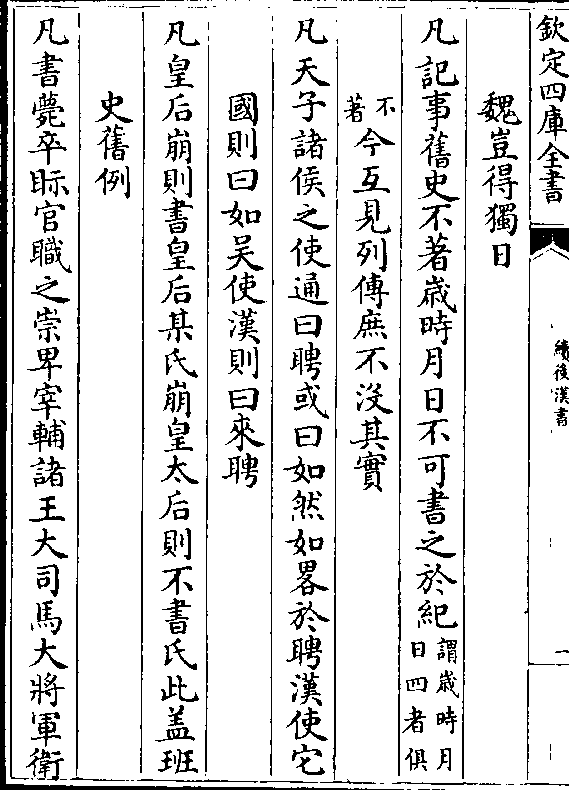 欽定四庫全書
續後漢書
一
魏豈得獨日
凡記事舊史不著歲時月日不可書之於紀謂歲時月
日四者俱
不
著今互見列傳庶不没其實
凡天子諸侯之使通曰聘或曰如然如畧於聘漢使它
國則曰如吴使漢則曰來聘
凡皇后崩則書皇后某氏崩皇太后則不書氏此盖班
史舊例
凡書薨卒眎官職之崇卑宰輔諸王大司馬大將軍衛